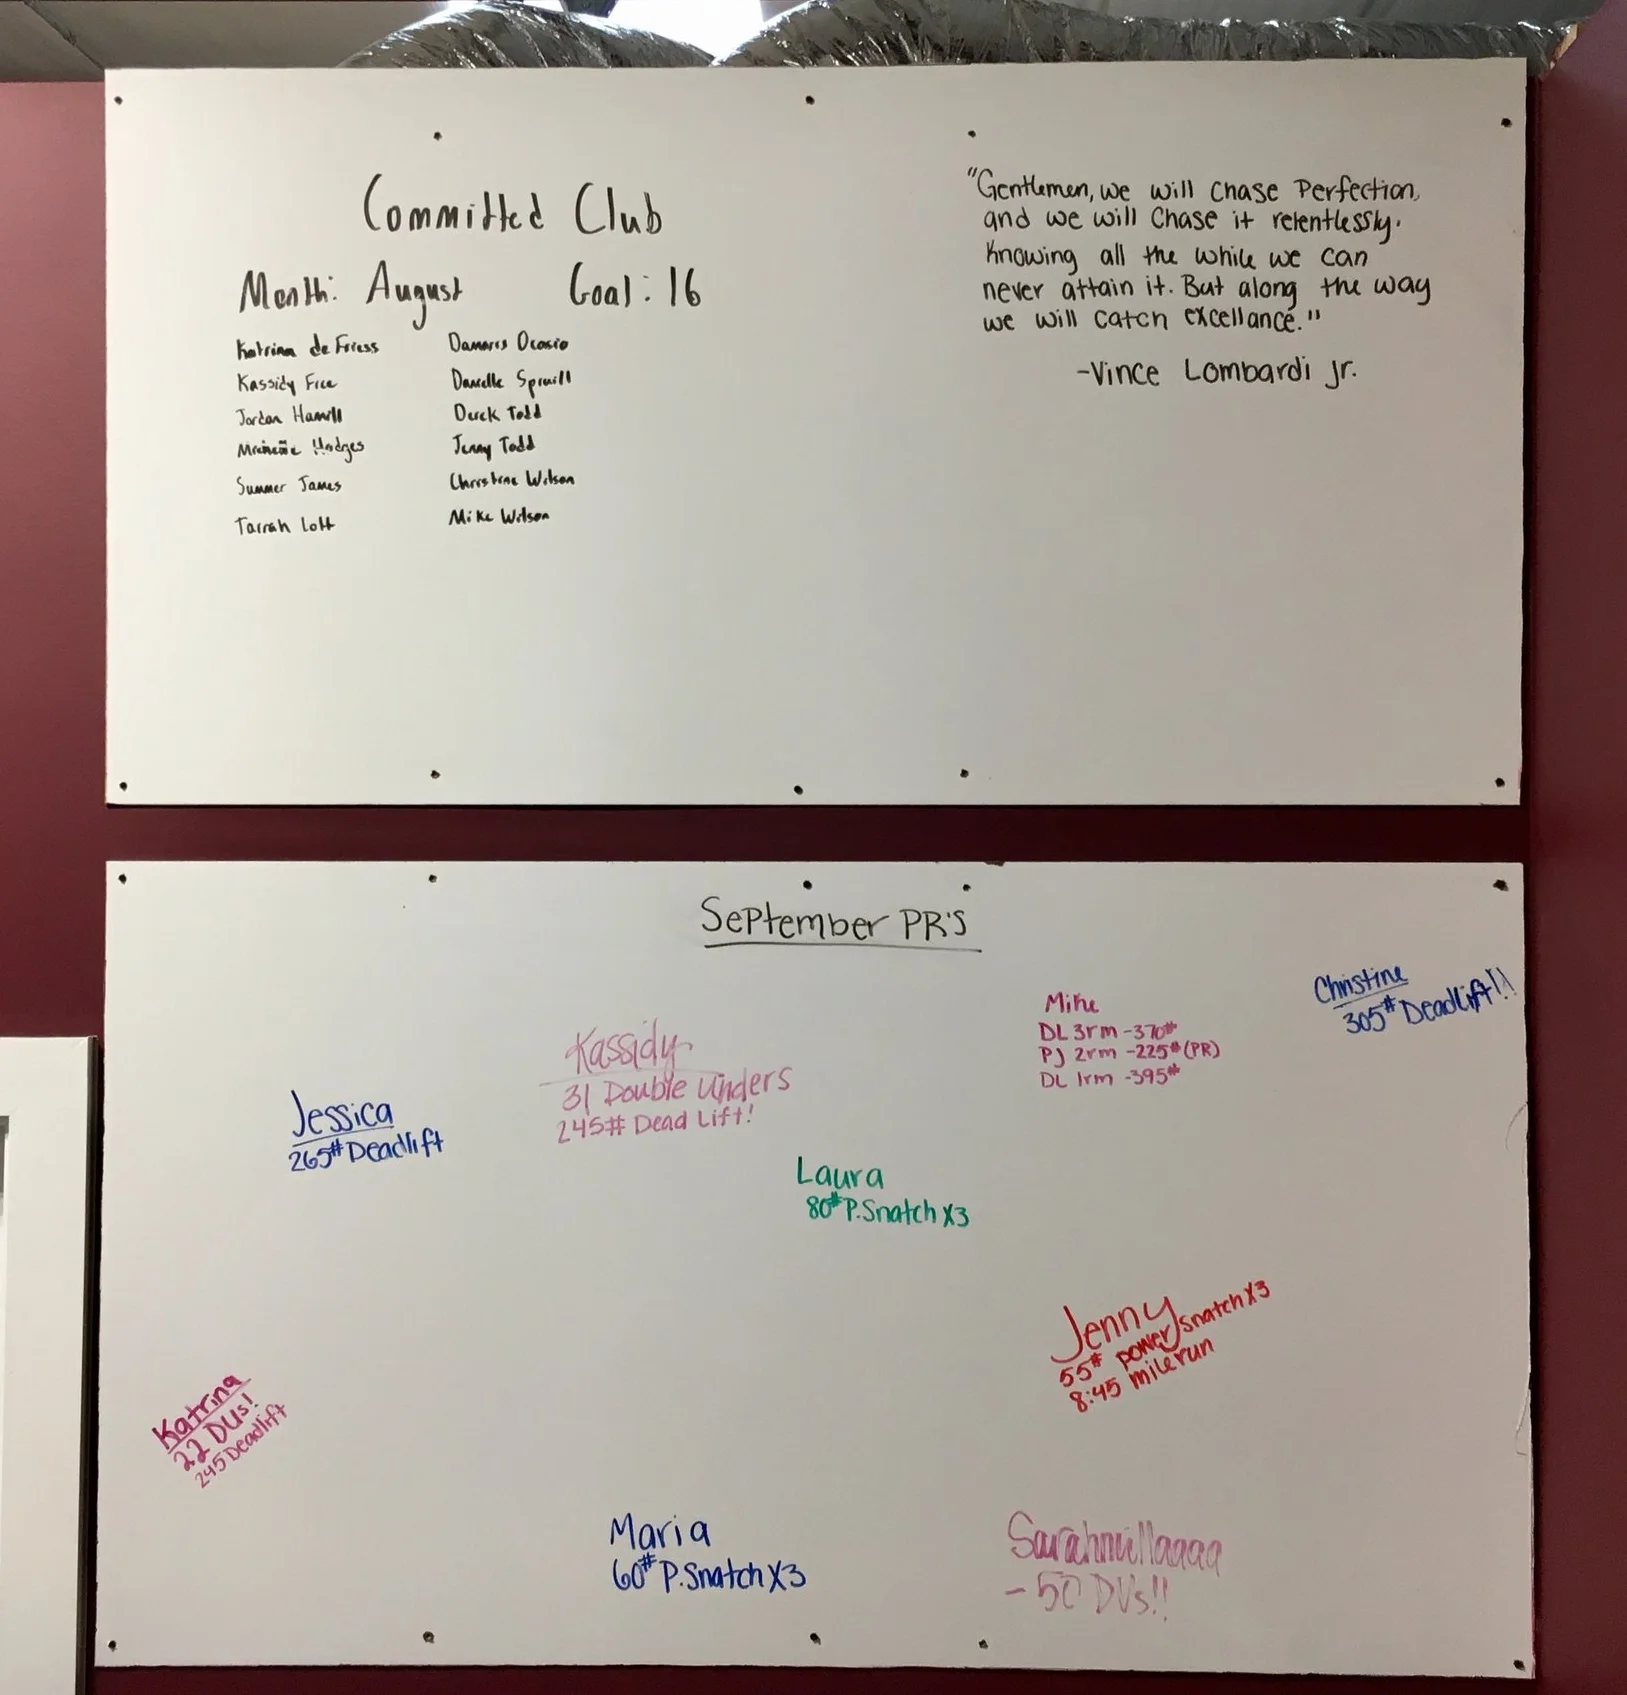 Committed Club
Month: August Goal: 16
Katrina de Friess
Kassidy Free
Jordan Hamill
Hodges
Summer James
Tarrah Lott
Damaris Ocasio
Danielle Spruill
Derek Todd
Jenny Todd
Christine Wilson
Mike Wilson
"Gentlemen, we will chase Perfection,
and we will chase it relentlessly.
Knowing all the while we can
never attain it. But along the way
we will catch excellance."
-Vince Lombardi Jr.
September PR's
Christine
305# Deadlift!!
Mike
DL 3rm -370#
PJ 2rm -225# (PR)
DL 1rm -395#
Kassidy
31 Double Unders
245# Dead Lift!
Jessica
265# Deadlift
Laura
80# P.Snatch X3
Jenny
55# power snatch X3
8:45 mile run
Katrina
22 DUs!
245 Deadlift
Maria
60# P.Snatch X3
- 50 DU's!!